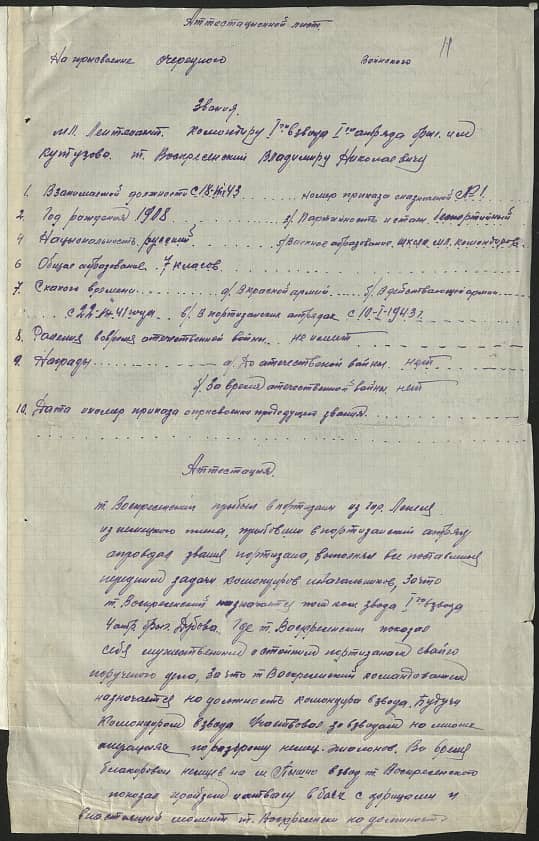 Аттестационной лист.
11
На присвоение очередного Воинского
Звания.
мл. Лейтенант. Командиру I го взвода I го отряда
Кутузова. т. Воскресенский Владимиру Николаевичу
1. Взанимаемой должности с 18- 43 номер приказа №1.
2. Год рождения 1908 3/ Партийность и стаж. беспартийный
4 Национальность русский 5/ Военное образование. школа мл. командиров
6 Общее образование 7 классов
7 Скакого времени а/ В красной армии б/ В действующей армии
с 22- 41 года в/ В партизанских отрядах с 10-I-1943 г
8. Ранения вовремя отечественной войны. не имеет
9. Награды а/ До отечественской войны нет
б/ За время отечественной войны нет
10. Дата иномер приказа оприсвоении предидущего звания
Аттестация.
т. Воскресенский прибыл в партизаны из гор.
из немецкого плена, в партизанский отряд
оправдал звания партизана, выполнял все поставленые
перед ним задачи командиров иначальников, За что
т. Воскресенский назначаетс взвода I го взвода
Где т. Воскресенский показал
себя мужественным и стойким партизаном своего
поручного дела, За что т Воскресенский командованием
назначается на должность командира взвода, Будучи
Командиром взвода Участвовал со взводам на
по разгрому немец. эшелонов. Во время
блакировки немцев на м взвод т. Воскресенского
показал в боях с и
внастоящий момент т. Воскресенски на должност